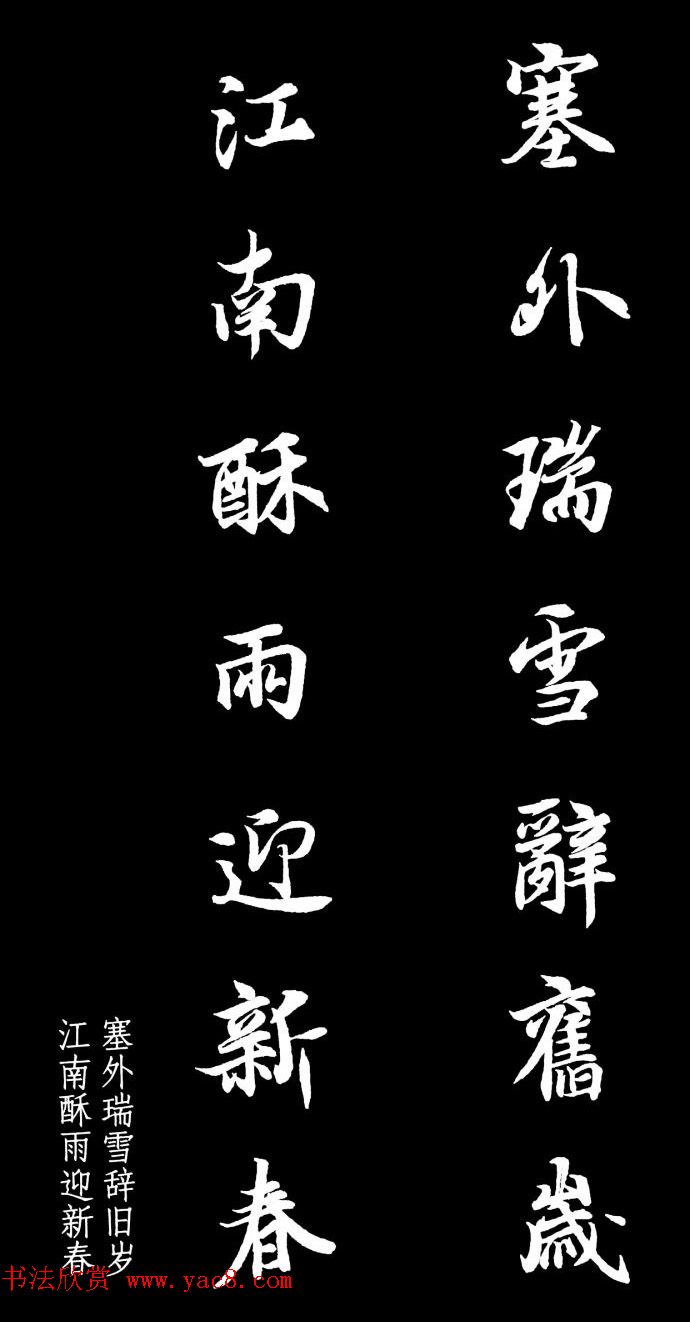 塞外瑞雪辭舊歲
江南酥雨迎新春
塞外瑞雪辞旧岁
江南酥雨迎新春
书法欣赏 www.yac8.com